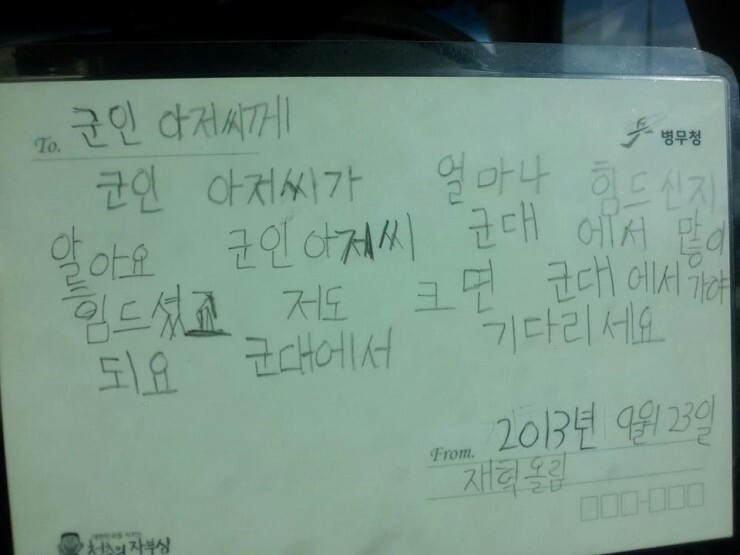 To. 군인 아저씨께
병무청
군인 아저씨가 얼마나 힘드신지
알아요 군인아저씨 군대 에서 많이
힘드셨고 저도 크면 군대에서 가야
되요 군대에서 기다리세요
2013년 9월 23일
From. 재혁올림
대한민국을 지키는
청춘의 자부심